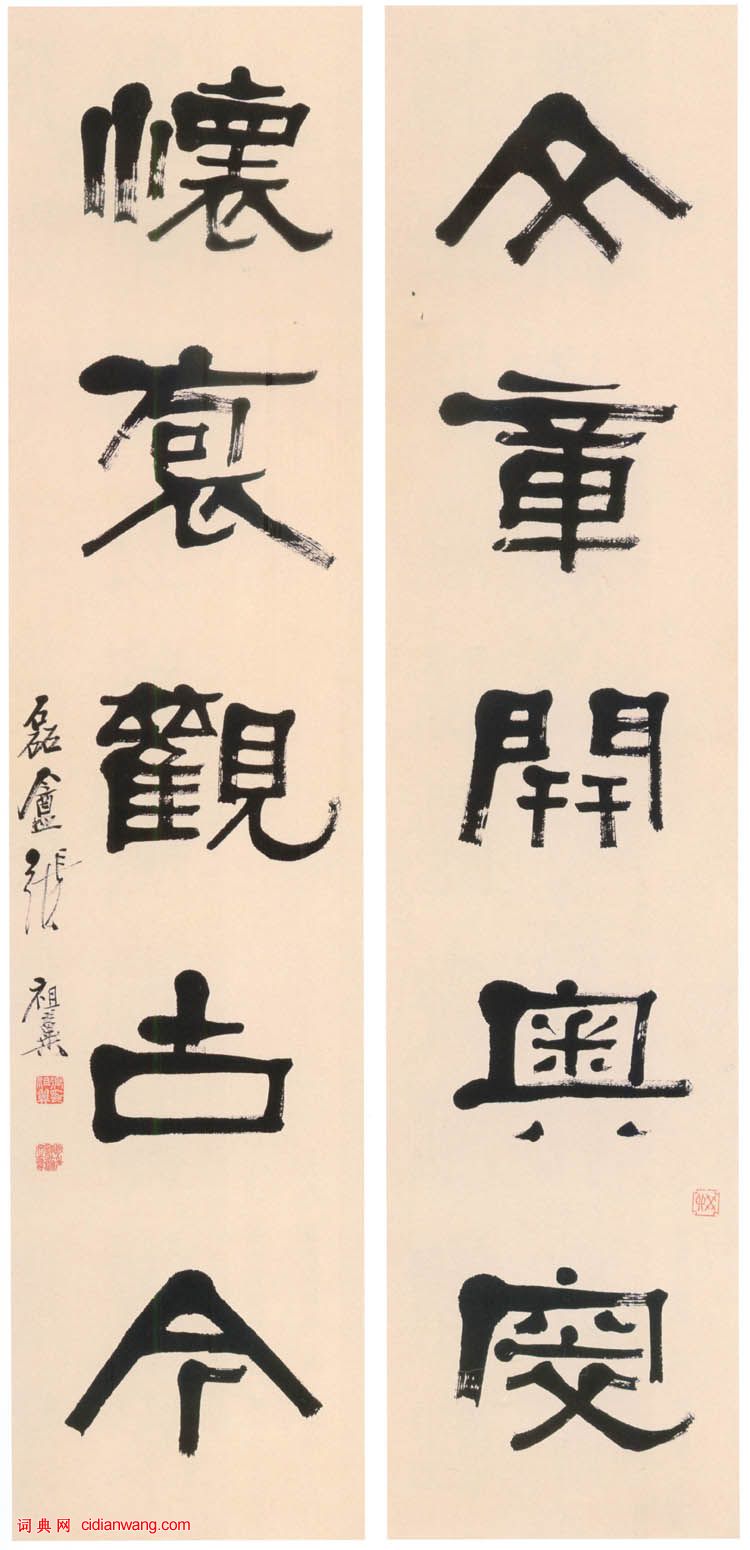 文章開奧窔
懷袌觀古今
磊盦張祖翼
词典网 cidianwang.com